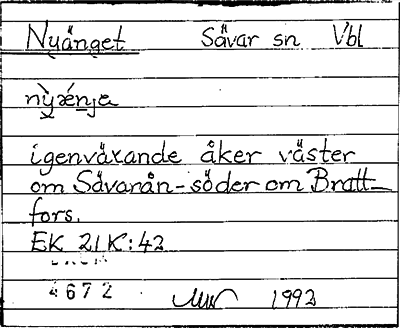 Nyänget Sävar sn Vbl
igenväxande åker väster
om Sävarån - söder om Bratt-
fors.
EK 21K:42
4672 1992